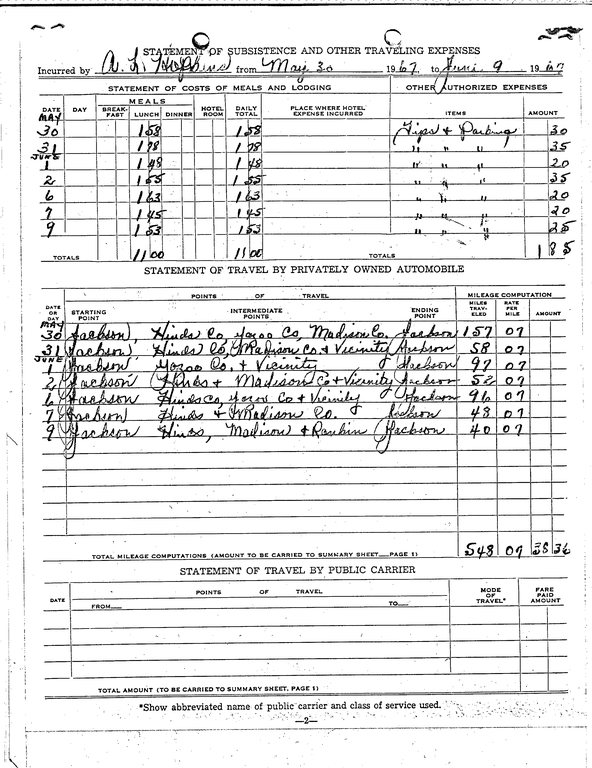 STATEMENT OF SUBSISTENCE AND OTHER TRAVELING EXPENSES
Incurred by A. L. Hopkins from May 30 1967, to June 9 1967
STATEMENT OF COSTS OF MEALS AND LODGING OTHER AUTHORIZED EXPENSES
MEALS
DATE DAY BREAK-FAST LUNCH DINNER HOTEL ROOM DAILY TOTAL PLACE WHERE HOTEL EXPENSE INCURRED ITEMS AMOUNT
MAY
30 1 58 1 58 Tips & Parking 30
31 1 78 1 78 " " " 35
JUNE
1 1 48 1 48 " " " 20
2 1 55 1 55 " " " 35
6 1 63 1 63 " " " 20
7 1 45 1 45 " " " 20
9 1 53 1 53 " " " 25
TOTALS 11 00 11 00 TOTALS 1 85
STATEMENT OF TRAVEL BY PRIVATELY OWNED AUTOMOBILE
POINTS OF TRAVEL MILEAGE COMPUTATION
DATE OR DAY STARTING POINT INTERMEDIATE POINTS ENDING POINT MILES TRAV-ELED RATE PER MILE AMOUNT
MAY
30 Jackson, Hinds Co, Yazoo Co, Madison Co, Jackson 157 07
31 Jackson Hinds Co, Madison Co & Vicinity Jackson 58 07
JUNE
1 Jackson Yazoo Co, & Vicinity Jackson 97 07
2 Jackson Hinds & Madison Co & Vicinity Jackson 52 07
6 Jackson Hinds Co, Yazoo Co & Vicinity Jackson 96 07
7 Jackson Hinds & Madison Co. Jackson 48 07
9 Jackson Hinds, Madison & Rankin Jackson 40 07
TOTAL MILEAGE COMPUTATIONS (AMOUNT TO BE CARRIED TO SUMMARY SHEET PAGE 1) 548 07 38 36
STATEMENT OF TRAVEL BY PUBLIC CARRIER
DATE POINTS OF TRAVEL MODE OF TRAVEL* FARE PAID AMOUNT
FROM TO
TOTAL AMOUNT (TO BE CARRIED TO SUMMARY SHEET, PAGE 1)
*Show abbreviated name of public carrier and class of service used.
—2—